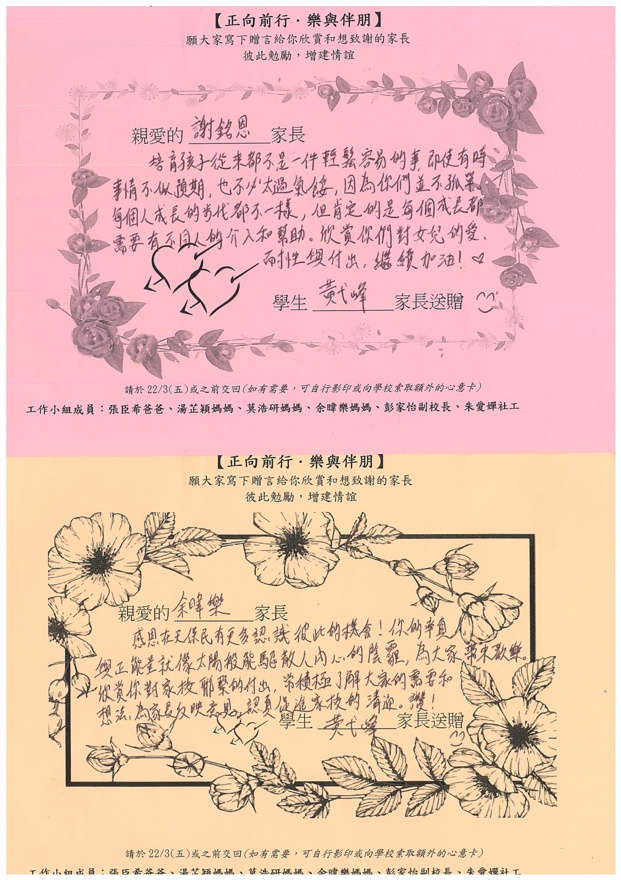 【正向前行‧樂與伴朋】
願大家寫下贈言給你欣賞和想致謝的家長
彼此勉勵，增建情誼
親愛的 謝銘恩 家長
培育孩子從來都不是一件輕鬆容易的事，即使有時
事情不似預期，也不必太過氣餒，因為你們並不孤單。
每個人成長的步伐都不一樣，但肯定的是每個成長都
需要有不同人的介入和幫助。欣賞你們對女兒的愛、
耐性與付出，繼續加油！♡
學生 黃弋峰 家長送贈
請於 22/3(五)或之前交回(如有需要，可自行影印或向學校索取額外的心意卡)
工作小組成員：張臣希爸爸、湯芷穎媽媽、莫浩研媽媽、余暐樂媽媽、彭家怡副校長、朱愛嬋社工
【正向前行‧樂與伴朋】
願大家寫下贈言給你欣賞和想致謝的家長
彼此勉勵，增建情誼
親愛的 余暐樂 家長
感恩在天保民有更多認識彼此的機會！你的率真
與正能量就像太陽般能驅散人內心的陰霾，為大家帶來歡樂。
欣賞你對家校聯繫的付出，常積極了解大家的需要和
想法，為家長反映意見，認真促進家校的溝通。讚！
學生 黃弋峰 家長送贈
請於 22/3(五)或之前交回(如有需要，可自行影印或向學校索取額外的心意卡)
工作小組成員：張臣希爸爸、湯芷穎媽媽、莫浩研媽媽、余暐樂媽媽、彭家怡副校長、朱愛嬋社工